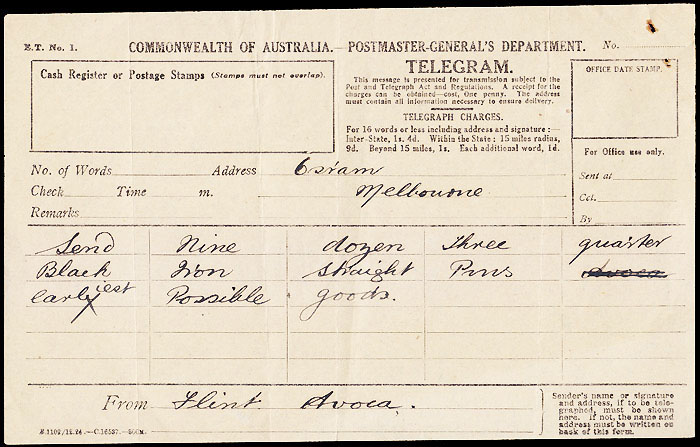 E.T. No. 1.
COMMONWEALTH OF AUSTRALIA.—POSTMASTER-GENERAL'S DEPARTMENT.
No.
Cash Register or Postage Stamps (Stamps must not overlap).
TELEGRAM.
This message is presented for transmission subject to the
Post and Telegraph Act and Regulations. A receipt for the
charges can be obtained—cost, One penny. The address
must contain all information necessary to ensure delivery.
TELEGRAPH CHARGES.
For 16 words or less including address and signature:—
Inter-State, 1s. 4d. Within the State: 15 miles radius,
9d. Beyond 15 miles, 1s. Each additional word, 1d.
OFFICE DATE STAMP.
For Office use only.
Sent at
Cct.
By
No. of Words Address Osram
Check Time m. Melbourne
Remarks
Send Nine dozen three quarter
Black Iron straight Pins Avoca
earliest Possible goods.
From Flint Avoca.
Sender's name or signature
and address, if to be tele-
graphed, must be shown
here. If not, the name and
address must be written on
back of this form.